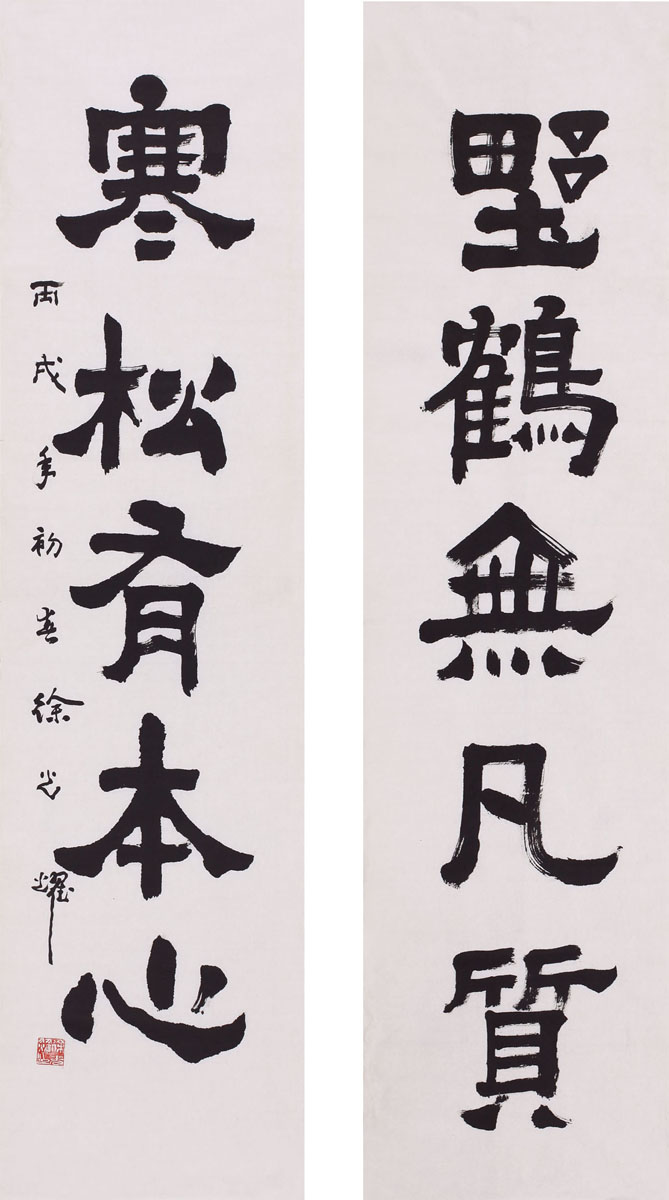 野鶴無凡質
寒松有本心
丙戌年初春徐光耀